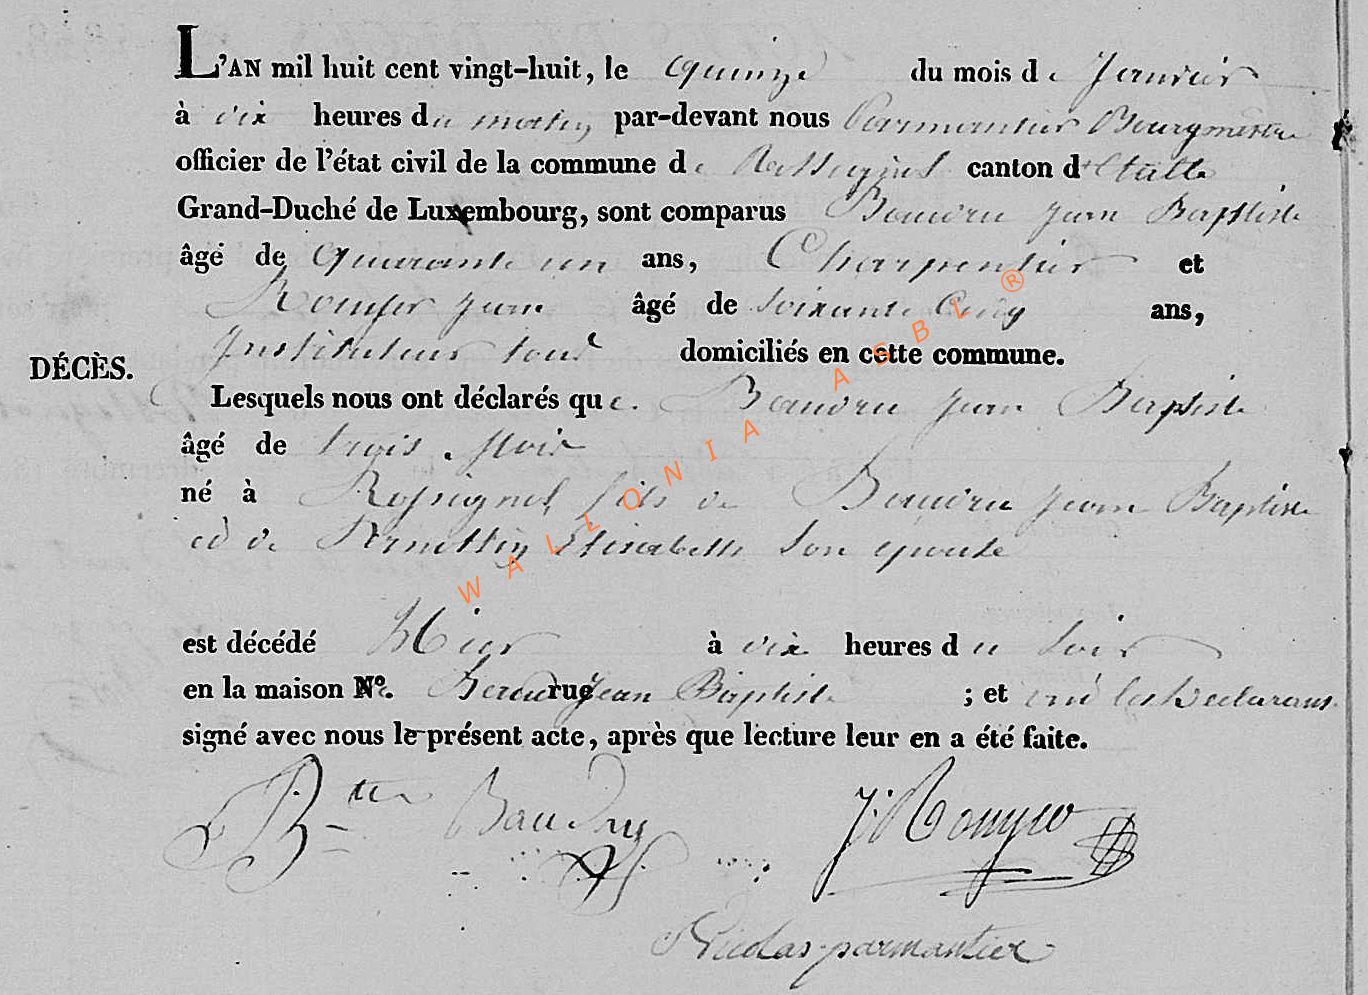 L'AN mil huit cent vingt-huit, le quinze du mois de Janvier
à dix heures du matin par-devant nous Parmantier Bourgmestre
officier de l'état civil de la commune de Rossignol canton d'Etalle
Grand-Duché de Luxembourg, sont comparus Baudru jean Baptiste
âgé de quarante un ans, Charpentier et
jean âgé de soixante Cinq ans,
instituteur tous domiciliés en cette commune.
DÉCÈS.
Lesquels nous ont déclarés que Baudru jean Baptiste
âgé de trois Mois
né à Rossignol fils de Baudru jean Baptiste
et de Elisabette son epouse
est décédé Hier à dix heures du soir
en la maison N.º Baudru rue jean Baptiste ; et ont les Declarans
signé avec nous le présent acte, après que lecture leur en a été faite.
Btte Baudru J: Rongvo
Nicolas parmantier
WALLONIA ASBL ®